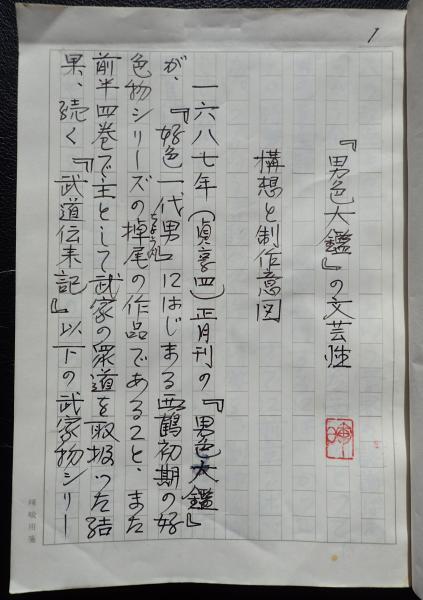 1
『男色大鑑』の文芸性
構想と制作意図
一六八七年(貞享四)正月刊の『男色大鑑』
が、『好色一代男』にはじまる西鶴初期の好
色物シリーズの掉尾の作品であること、また
ちょうび
前半四巻で主として武家の衆道を取扱った結
果、続く『武道伝来記』以下の武家物シリー